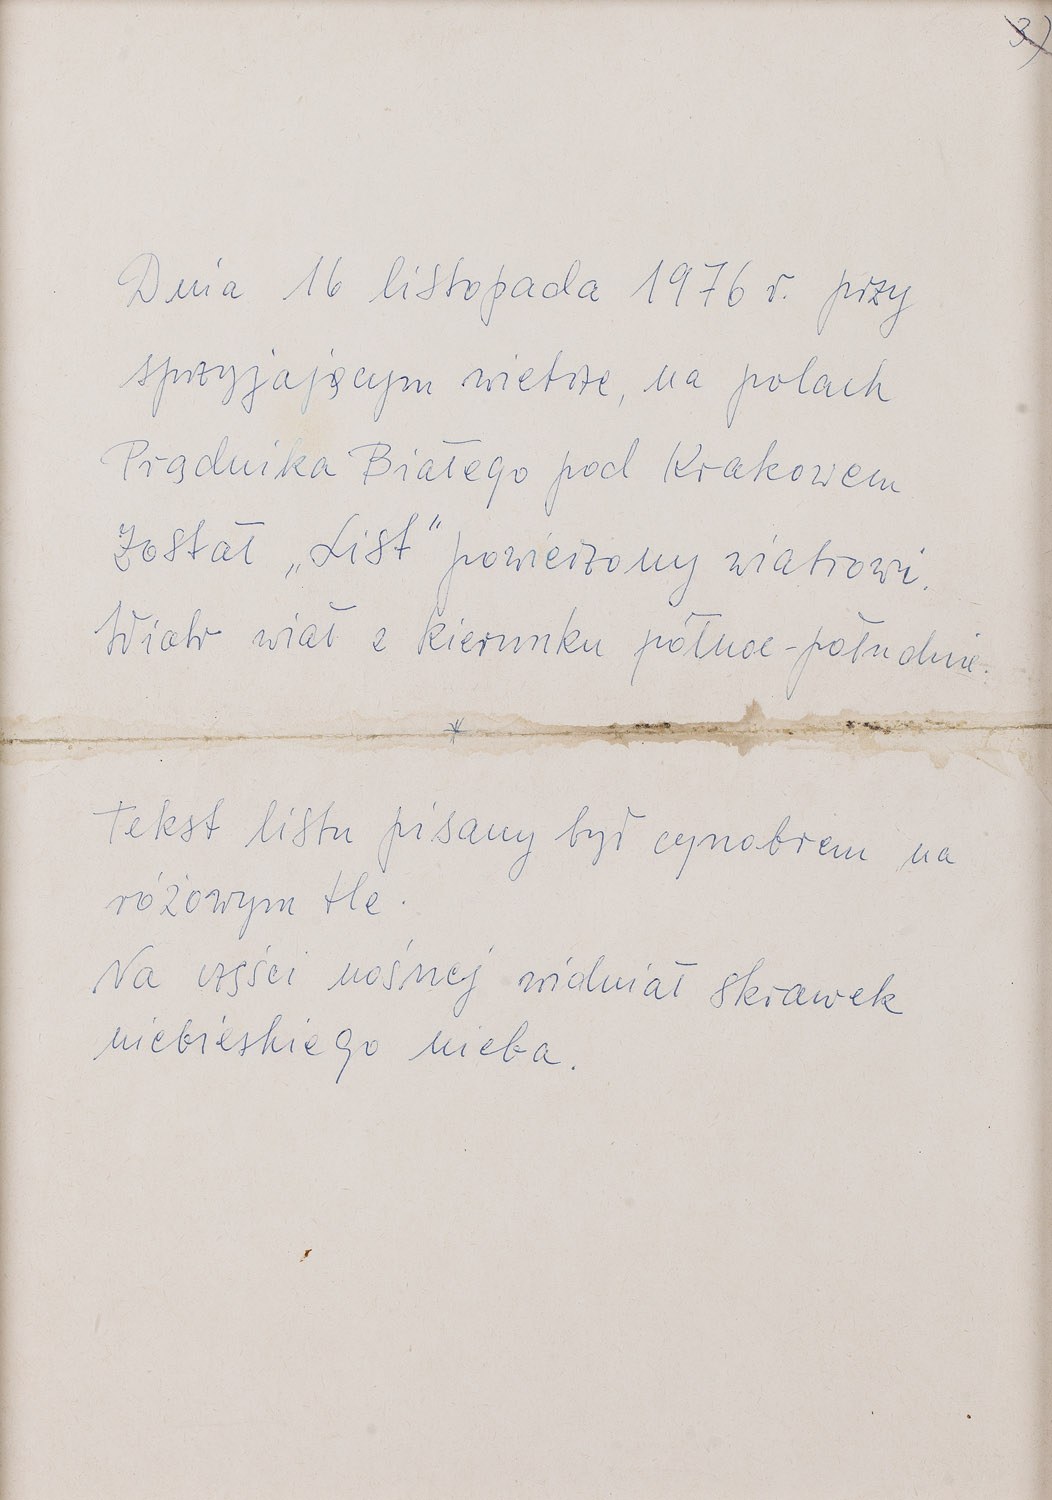 3)
Dnia 16 listopada 1976 r. przy
sprzyjającym wietrze, na polach
Prądnika Białego pod Krakowem
został „List” powierzony wiatrowi.
Wiatr wiał z kierunku północ-południe.
*
Tekst listu pisany był cynobrem na
różowym tle.
Na części nośnej widniał skrawek
niebieskiego nieba.